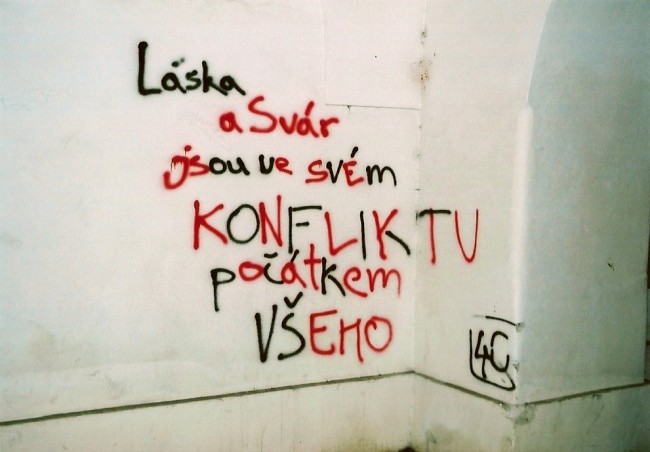 Láska
a Svár
jsou ve svém
KONFLIKTU
počátkem
VŠEHO
4C